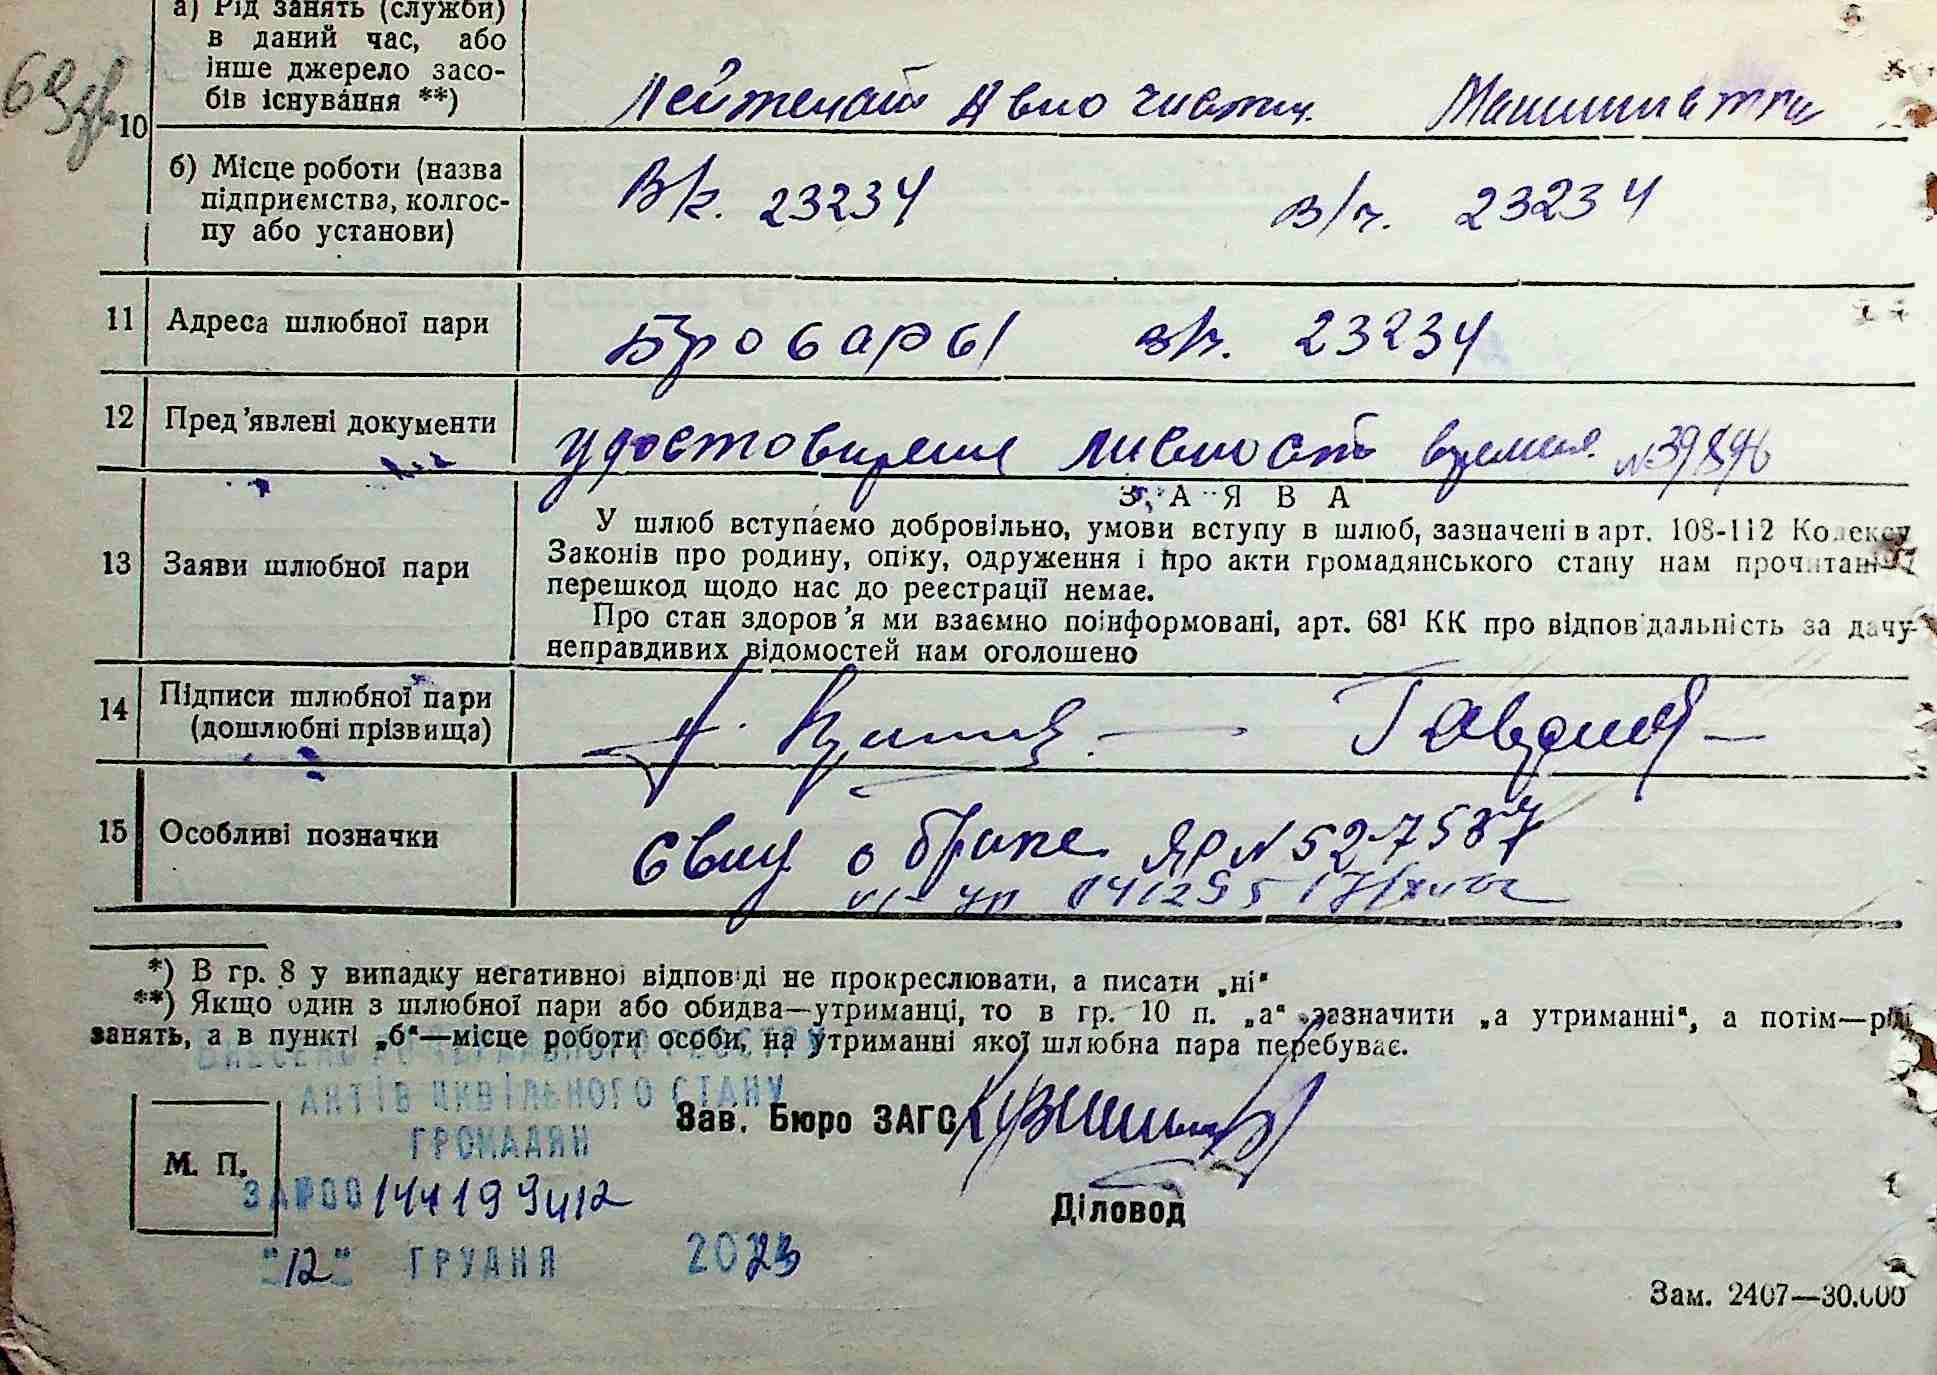 а) Рід занять (служби)
в даний час, або
інше джерело засо-
бів існування **)
Лейтенант Машинистка
10
б) Місце роботи (назва
підприємства, колгос-
пу або установи)
В/ч. 23234 в/ч. 23234
11 Адреса шлюбної пари Бровары в/ч. 23234
12 Пред'явлені документи удостоверение личност
13 Заяви шлюбної пари
ЗАЯВА
У шлюб вступаємо добровільно, умови вступу в шлюб, зазначені в арт. 108-112 Кодексу
Законів про родину, опіку, одруження і про акти громадянського стану нам прочитані
перешкод щодо нас до реєстрації немає.
Про стан здоров'я ми взаємно поінформовані, арт. 68¹ КК про відповідальність за дачу
неправдивих відомостей нам оголошено
14 Підписи шлюбної пари
(дошлюбні прізвища)
15 Особливі позначки о браке ЯР N 527587
*) В гр. 8 у випадку негативної відповіді не прокреслювати, а писати „ні“
**) Якщо один з шлюбної пари або обидва—утриманці, то в гр. 10 п. „а“ зазначити „а утриманні“, а потім—рід
занять, а в пункті „б“—місце роботи особи, на утриманні якої шлюбна пара перебуває.
ВНЕСЕНО ДО ДЕРЖАВНОГО РЕЄСТРУ
АКТІВ ЦИВІЛЬНОГО СТАНУ
ГРОМАДЯН
Зав. Бюро ЗАГС
М. П.
Діловод
"12" ГРУДНЯ 2023
Зам. 2407—30.000